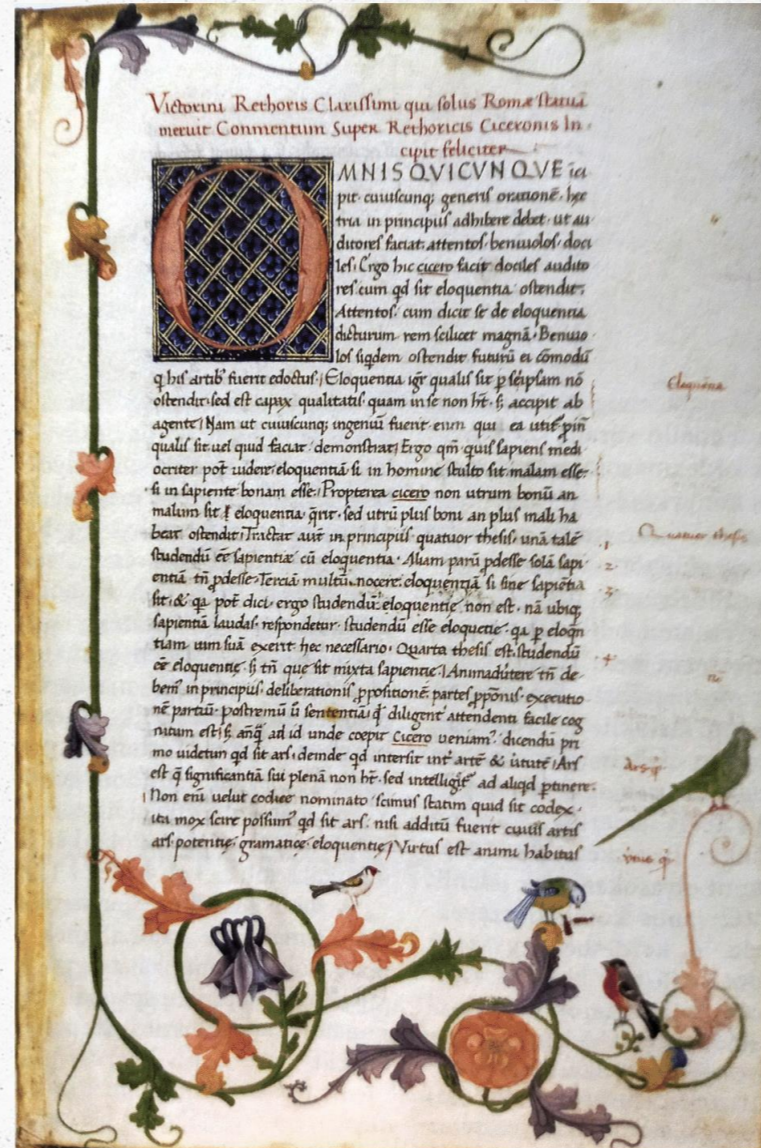 Victorini Rethoris Clarissimi qui solus Romæ statuā
meruit Conmentum Super Rethoricis Ciceronis In-
cipit feliciter
OMNIS QVICVNQVE īci
pit cuiuscunq; generis orationē hec
tria in principiis adhibere debet ut au
ditores faciat attentos beniuolos doci
les. Ergo hic cicero facit dociles audito
res cum qd sit eloquentia ostendit.
Attentos cum dicit se de eloquentia
dicturum rem scilicet magnā. Beniuo
los siqdem ostendit futurū ei cōmodū
q his artib' fuerit edoctus. Eloquentia igr qualis sit p seipsam nō
ostendit sed est capax qualitatis quam in se non ht s; accipit ab
agente. Nam ut cuiuscunq; ingeniū fuerit eum qui ea utit'
qualis sit uel quid faciat demonstrat. Ergo qm quis sapiens medi
ocriter pot uidere eloquentiā si in homine stulto sit malam esse
si in sapiente bonam esse. Propterea cicero non utrum bonū an
malum sit eloquentia q̄rit sed utrū plus boni an plus mali ha
beat ostendit. Tractat aut in principiis quatuor thesis. unā talē
studendū ēe sapientiæ cū eloquentia. Aliam parū pdesse solā sapi
entiā tn̄ pdesse. Terciā multū nocere eloquentiā si sine sapiētia
sit. & qa pot dici ergo studendū eloquentie non est nā ubiq;
sapientiā laudas. respondetur studendū esse eloquētie qa p eloqn
tiam uim suā exerit hec necessario. Quarta thesis est studendū
ēe eloquentie s; tn̄ que sit mixta sapientie. Animaduertere tn̄ de-
bem' in principiis deliberationis ppositionē partes pponis executio
nē partiū postremū ū sententiā q diligent' attendenti facile cog
nitum est. s; anq ad id unde coepit Cicero ueniam' dicendū pri
mo uidetur qd sit ars. deinde qd intersit int' artē & uirtutē. Ars
est q significantiā sui plenā non ht. sed intelligit' ad aliqd ptinere.
Non eni uelut codice nominato scimus statim quid sit codex.
ita mox scire possum' qd sit ars. nisi additū fuerit cuius artis
ars potentie gramatice eloquentie. Virtus est animi habitus
Eloquētia
Quatuor thesis
1
2
3
4
Ars q